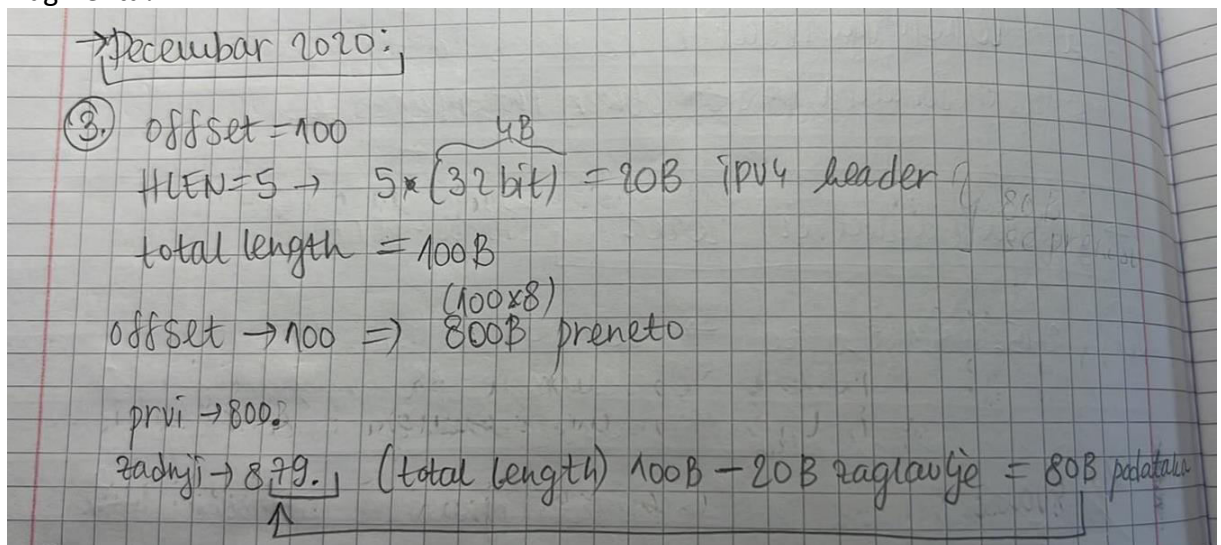 → Decembar 2020:
3. offset = 100
4B
HLEN=5 → 5*(32 bit) = 20B ipv4 header
total length = 100B
(100x8)
offset → 100 => 800B preneto
prvi → 800.
zadnji → 879. (total length) 100B - 20B zaglavlje = 80B podataka